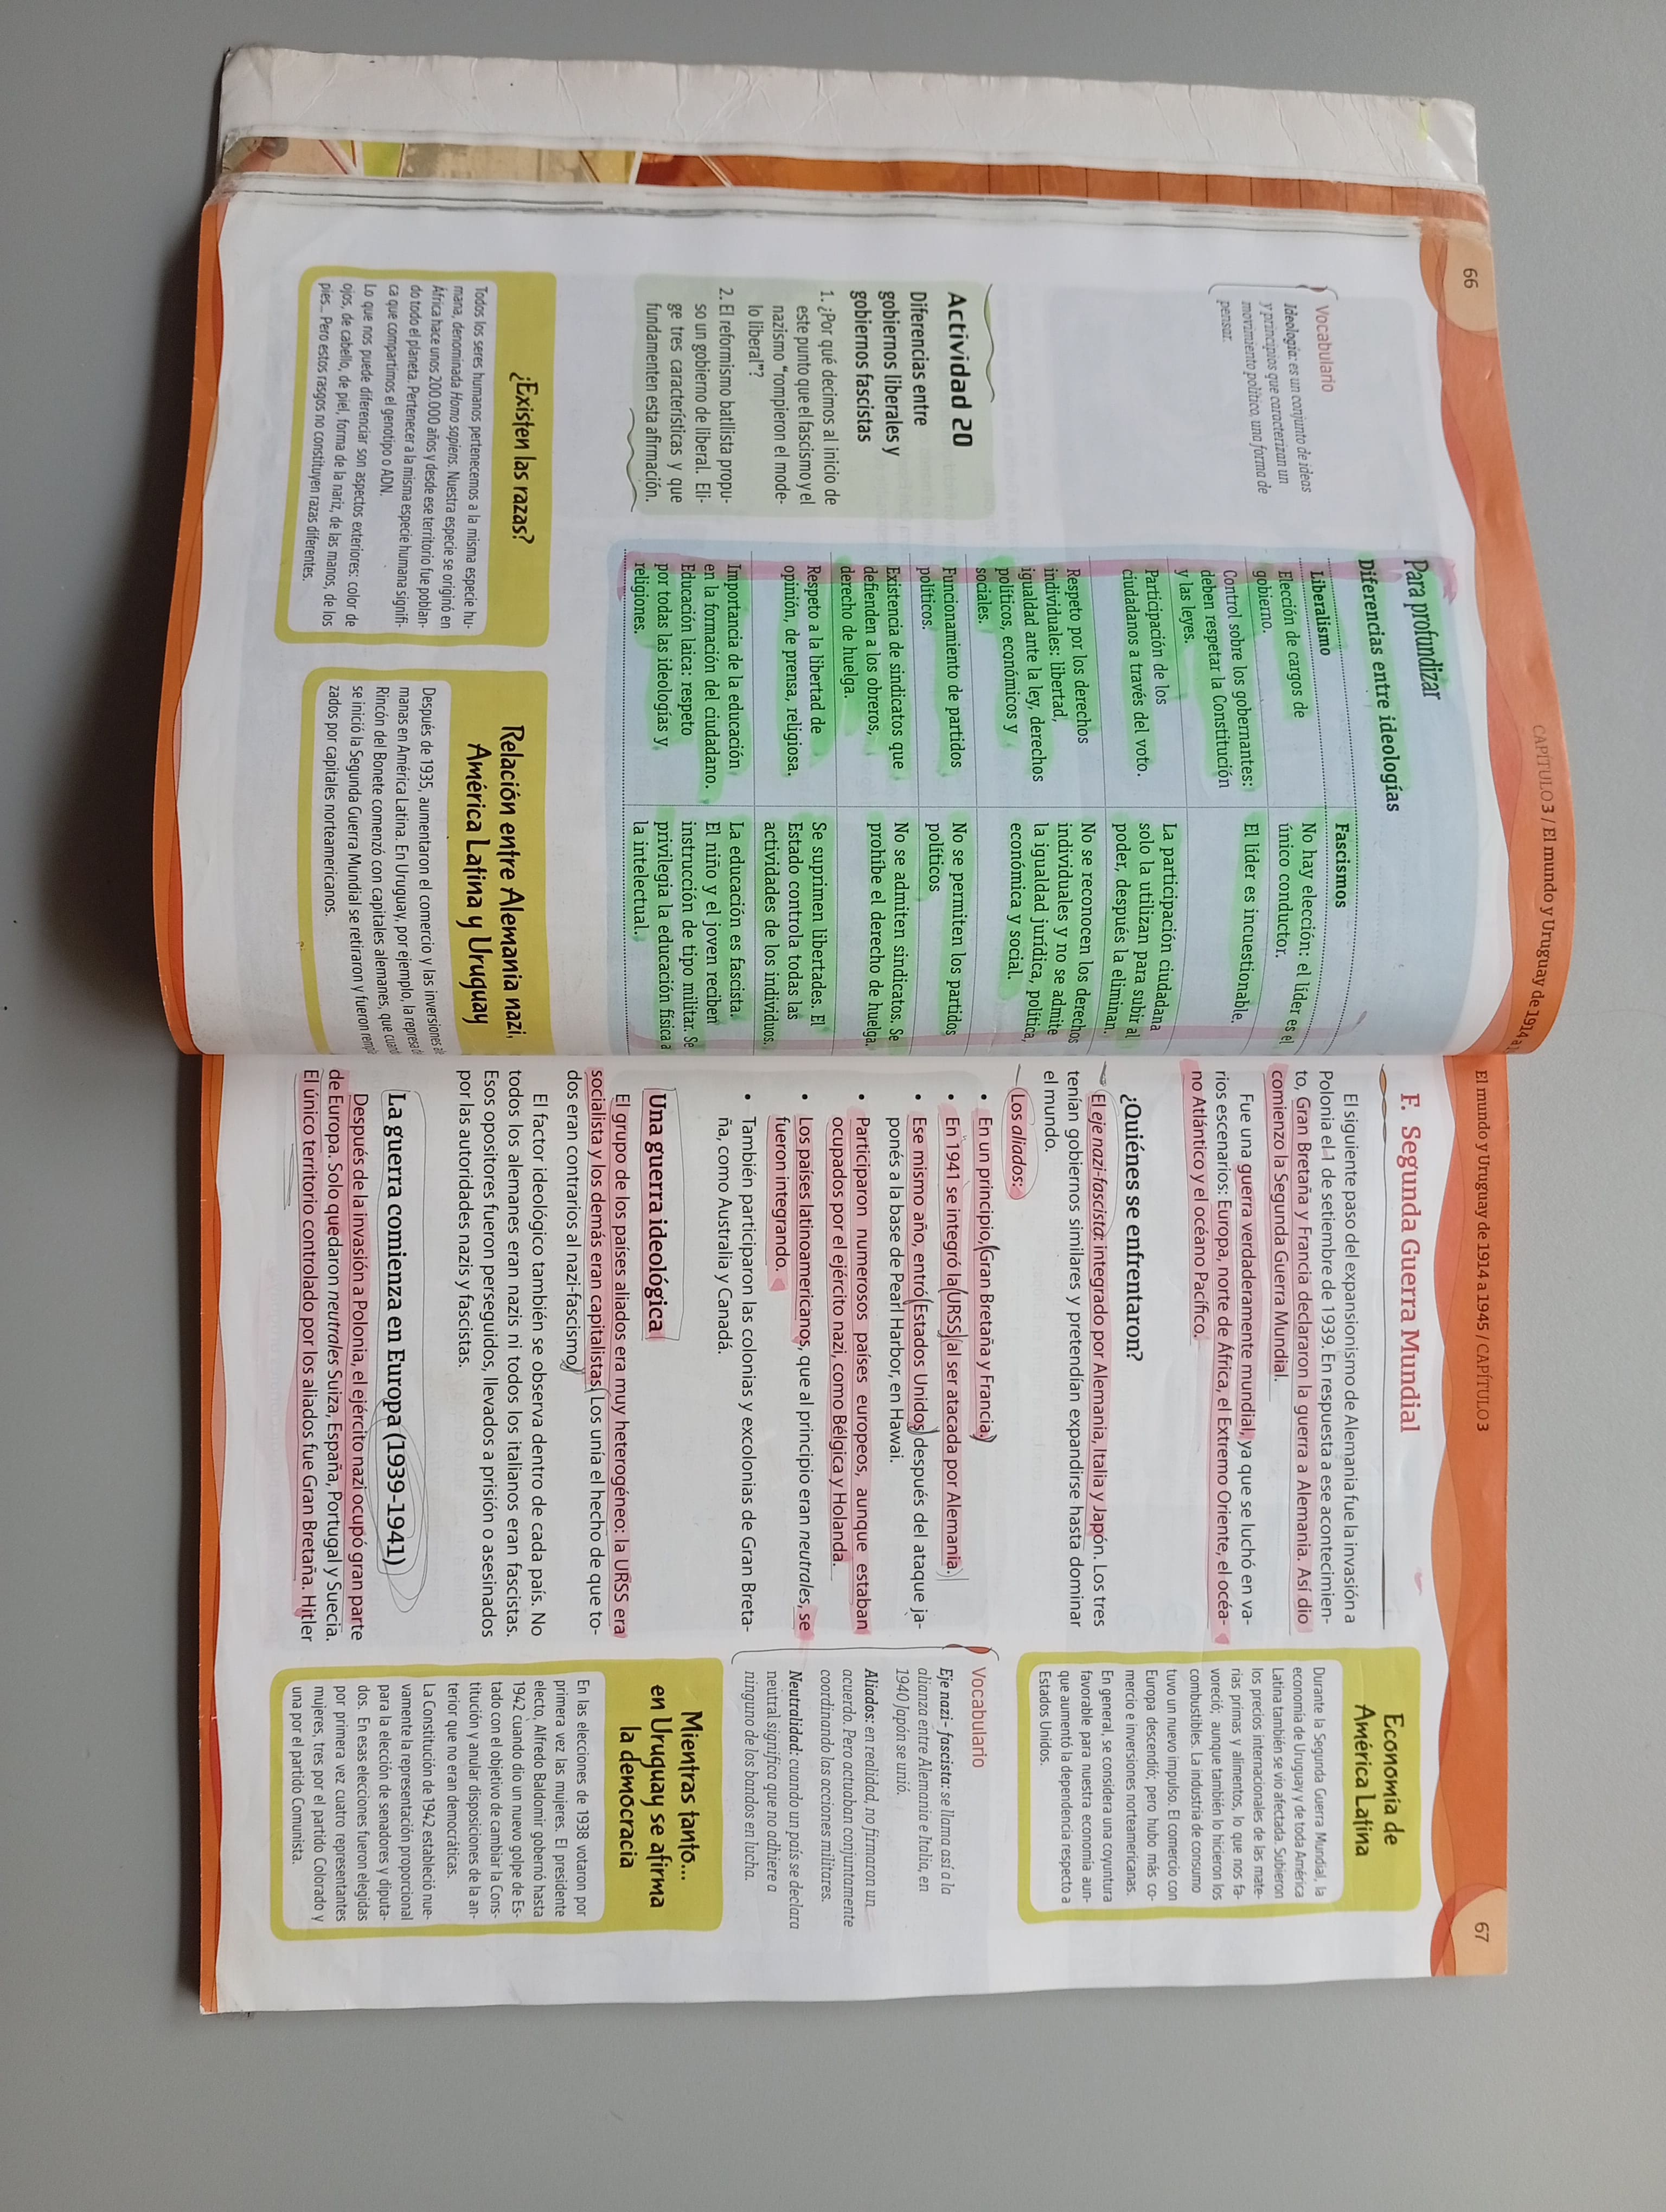 66
CAPÍTULO 3 / El mundo y Uruguay de 1914 a
Vocabulario
Ideología: es un conjunto de ideas
y principios que caracterizan un
movimiento político, una forma de
pensar.
Actividad 20
Diferencias entre
gobiernos liberales y
gobiernos fascistas
1. ¿Por qué decimos al inicio de
este punto que el fascismo y el
nazismo "rompieron el mode-
lo liberal"?
2. El reformismo batllista propu-
so un gobierno de liberal. Eli-
ge tres características y que
fundamenten esta afirmación.
Para profundizar
Diferencias entre ideologías
Liberalismo
Fascismos
Elección de cargos de
gobierno.
No hay elección: el líder es el
único conductor.
Control sobre los gobernantes:
deben respetar la Constitución
y las leyes.
El líder es incuestionable.
Participación de los
ciudadanos a través del voto.
La participación ciudadana
solo la utilizan para subir al
poder, después la eliminan.
Respeto por los derechos
individuales: libertad,
igualdad ante la ley, derechos
políticos, económicos y
sociales.
No se reconocen los derechos
individuales y no se admite
la igualdad jurídica, política,
económica y social.
Funcionamiento de partidos
políticos.
No se permiten los partidos
políticos
Existencia de sindicatos que
defienden a los obreros,
derecho de huelga.
No se admiten sindicatos. Se
prohíbe el derecho de huelga.
Respeto a la libertad de
opinión, de prensa, religiosa.
Se suprimen libertades. El
Estado controla todas las
actividades de los individuos.
Importancia de la educación
en la formación del ciudadano.
Educación laica: respeto
por todas las ideologías y
religiones.
La educación es fascista.
El niño y el joven reciben
instrucción de tipo militar. Se
privilegia la educación física a
la intelectual.
¿Existen las razas?
Todos los seres humanos pertenecemos a la misma especie hu-
mana, denominada Homo sapiens. Nuestra especie se originó en
África hace unos 200.000 años y desde ese territorio fue poblan-
do todo el planeta. Pertenecer a la misma especie humana signifi-
ca que compartimos el genotipo o ADN.
Lo que nos puede diferenciar son aspectos exteriores: color de
ojos, de cabello, de piel, forma de la nariz, de las manos, de los
pies... Pero estos rasgos no constituyen razas diferentes.
Relación entre Alemania nazi,
América Latina y Uruguay
Después de 1935, aumentaron el comercio y las inversiones
manas en América Latina. En Uruguay, por ejemplo, la represa
Rincón del Bonete comenzó con capitales alemanes, que
se inició la Segunda Guerra Mundial se retiraron y fueron
zados por capitales norteamericanos.
El mundo y Uruguay de 1914 a 1945 / CAPÍTULO 3
67
F. Segunda Guerra Mundial
El siguiente paso del expansionismo de Alemania fue la invasión a
Polonia el 1 de setiembre de 1939. En respuesta a ese acontecimien-
to, Gran Bretaña y Francia declararon la guerra a Alemania. Así dio
comienzo la Segunda Guerra Mundial.
Fue una guerra verdaderamente mundial, ya que se luchó en va-
rios escenarios: Europa, norte de África, el Extremo Oriente, el océa-
no Atlántico y el océano Pacífico.
¿Quiénes se enfrentaron?
El eje nazi-fascista: integrado por Alemania, Italia y Japón. Los tres
tenían gobiernos similares y pretendían expandirse hasta dominar
el mundo.
Los aliados:
• En un principio, Gran Bretaña y Francia.
• En 1941 se integró la URSS al ser atacada por Alemania.
• Ese mismo año, entró Estados Unidos, después del ataque ja-
ponés a la base de Pearl Harbor, en Hawai.
• Participaron numerosos países europeos, aunque estaban
ocupados por el ejército nazi, como Bélgica y Holanda.
• Los países latinoamericanos, que al principio eran neutrales, se
fueron integrando.
• También participaron las colonias y excolonias de Gran Breta-
ña, como Australia y Canadá.
Una guerra ideológica
El grupo de los países aliados era muy heterogéneo: la URSS era
socialista y los demás eran capitalistas. Los unía el hecho de que to-
dos eran contrarios al nazi-fascismo.
El factor ideológico también se observa dentro de cada país. No
todos los alemanes eran nazis ni todos los italianos eran fascistas.
Esos opositores fueron perseguidos, llevados a prisión o asesinados
por las autoridades nazis y fascistas.
La guerra comienza en Europa (1939-1941)
Después de la invasión a Polonia, el ejército nazi ocupó gran parte
de Europa. Solo quedaron neutrales Suiza, España, Portugal y Suecia.
El único territorio controlado por los aliados fue Gran Bretaña. Hitler
Economía de
América Latina
Durante la Segunda Guerra Mundial, la
economía de Uruguay y de toda América
Latina también se vio afectada. Subieron
los precios internacionales de las mate-
rias primas y alimentos, lo que nos fa-
voreció; aunque también lo hicieron los
combustibles. La industria de consumo
tuvo un nuevo impulso. El comercio con
Europa descendió; pero hubo más co-
mercio e inversiones norteamericanas.
En general, se considera una coyuntura
favorable para nuestra economía aun-
que aumentó la dependencia respecto a
Estados Unidos.
Vocabulario
Eje nazi - fascista: se llama así a la
alianza entre Alemania e Italia, en
1940 Japón se unió.
Aliados: en realidad, no firmaron un
acuerdo. Pero actuaban conjuntamente
coordinando las acciones militares.
Neutralidad: cuando un país se declara
neutral significa que no adhiere a
ninguno de los bandos en lucha.
Mientras tanto...
en Uruguay se afirma
la democracia
En las elecciones de 1938 votaron por
primera vez las mujeres. El presidente
electo, Alfredo Baldomir gobernó hasta
1942 cuando dio un nuevo golpe de Es-
tado con el objetivo de cambiar la Cons-
titución y anular disposiciones de la an-
terior que no eran democráticas.
La Constitución de 1942 estableció nue-
vamente la representación proporcional
para la elección de senadores y diputa-
dos. En esas elecciones fueron elegidas
por primera vez cuatro representantes
mujeres, tres por el partido Colorado y
una por el partido Comunista.